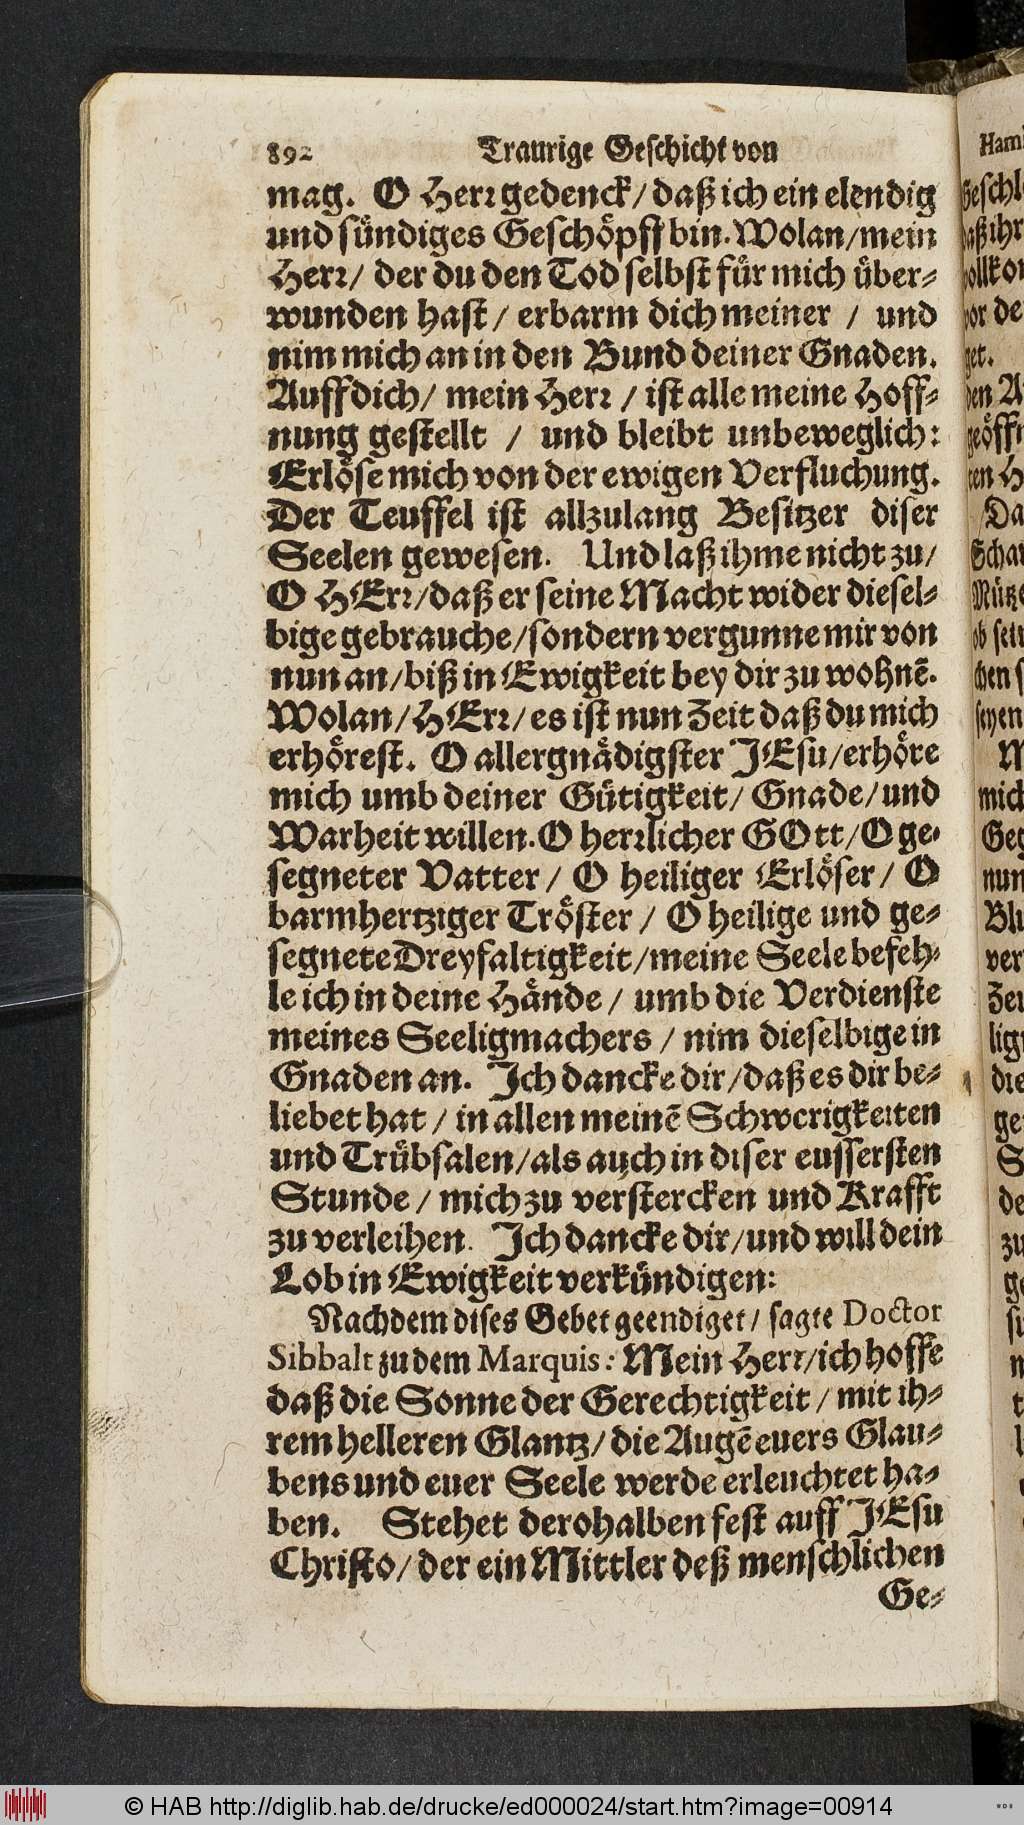 892 Traurige Geschicht von
mag. O Herr gedenck/ daß ich ein elendig
und sündiges Geschöpff bin. Wolan/ mein
Herr/ der du den Tod selbst für mich über-
wunden hast/ erbarm dich meiner / und
nim mich an in den Bund deiner Gnaden.
Auff dich/ mein Herr / ist alle meine Hoff-
nung gestellt / und bleibt unbeweglich:
Erlöse mich von der ewigen Verfluchung.
Der Teuffel ist allzulang Besitzer diser
Seelen gewesen. Und laß ihme nicht zu/
O HErr/ daß er seine Macht wider diesel-
bige gebrauche/ sondern vergunne mir von
nun an/ biß in Ewigkeit bey dir zu wohnē.
Wolan/ HErr/ es ist nun Zeit daß du mich
erhörest. O allergnädigster JEsu/ erhöre
mich umb deiner Gütigkeit/ Gnade/ und
Warheit willen. O herrlicher GOtt/ O ge-
segneter Vatter/ O heiliger Erlöser/ O
barmhertziger Tröster / O heilige und ge-
segnete Dreyfaltigkeit/ meine Seele befeh-
le ich in deine Hände / umb die Verdienste
meines Seeligmachers / nim dieselbige in
Gnaden an. Ich dancke dir/ daß es dir be-
liebet hat / in allen meinē Schwerigkeiten
und Trübsalen/ als auch in diser eussersten
Stunde / mich zu verstercken und Krafft
zu verleihen. Ich dancke dir/ und will dein
Lob in Ewigkeit verkündigen:
Nachdem dises Gebet geendiget/ sagte Doctor
Sibbalt zu dem Marquis: Mein Herr/ ich hoffe
daß die Sonne der Gerechtigkeit / mit ih-
rem helleren Glantz/ die Augē euers Glau-
bens und euer Seele werde erleuchtet ha-
ben. Stehet derohalben fest auff JEsu
Christo/ der ein Mittler deß menschlichen
Ge-
© HAB http://diglib.hab.de/drucke/ed000024/start.htm?image=00914